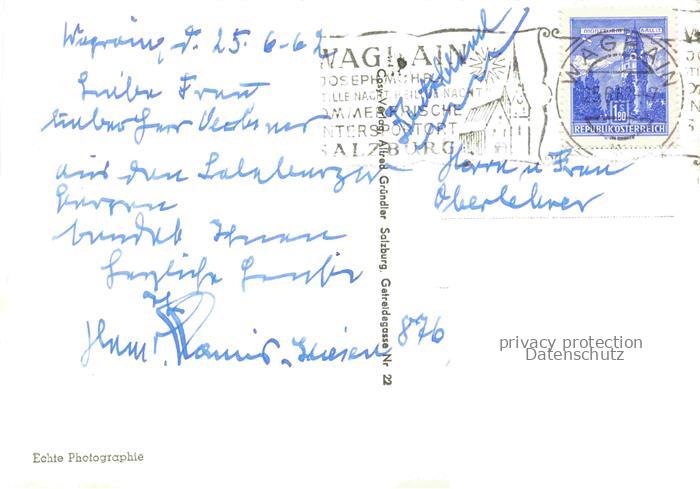 Wagrain, d. 25.6-62
Liebe Frau
lieber Herr
aus den Salzburger
Bergen
sendet Ihnen
herzliche Grüße
876
WAGRAIN
JOSEPH MOHR
STILLE NACHT HEILIGE NACHT
SOMMERFRISCHE
WINTERSPORTORT
SALZBURG
WAGRAIN
REPUBLIK ÖSTERREICH
Deutschland
Herrn u Frau
Oberlehrer
Cosy-Verlag, Alfred Gründler Salzburg, Getreidegasse Nr 22
privacy protection
Datenschutz
Echte Photographie